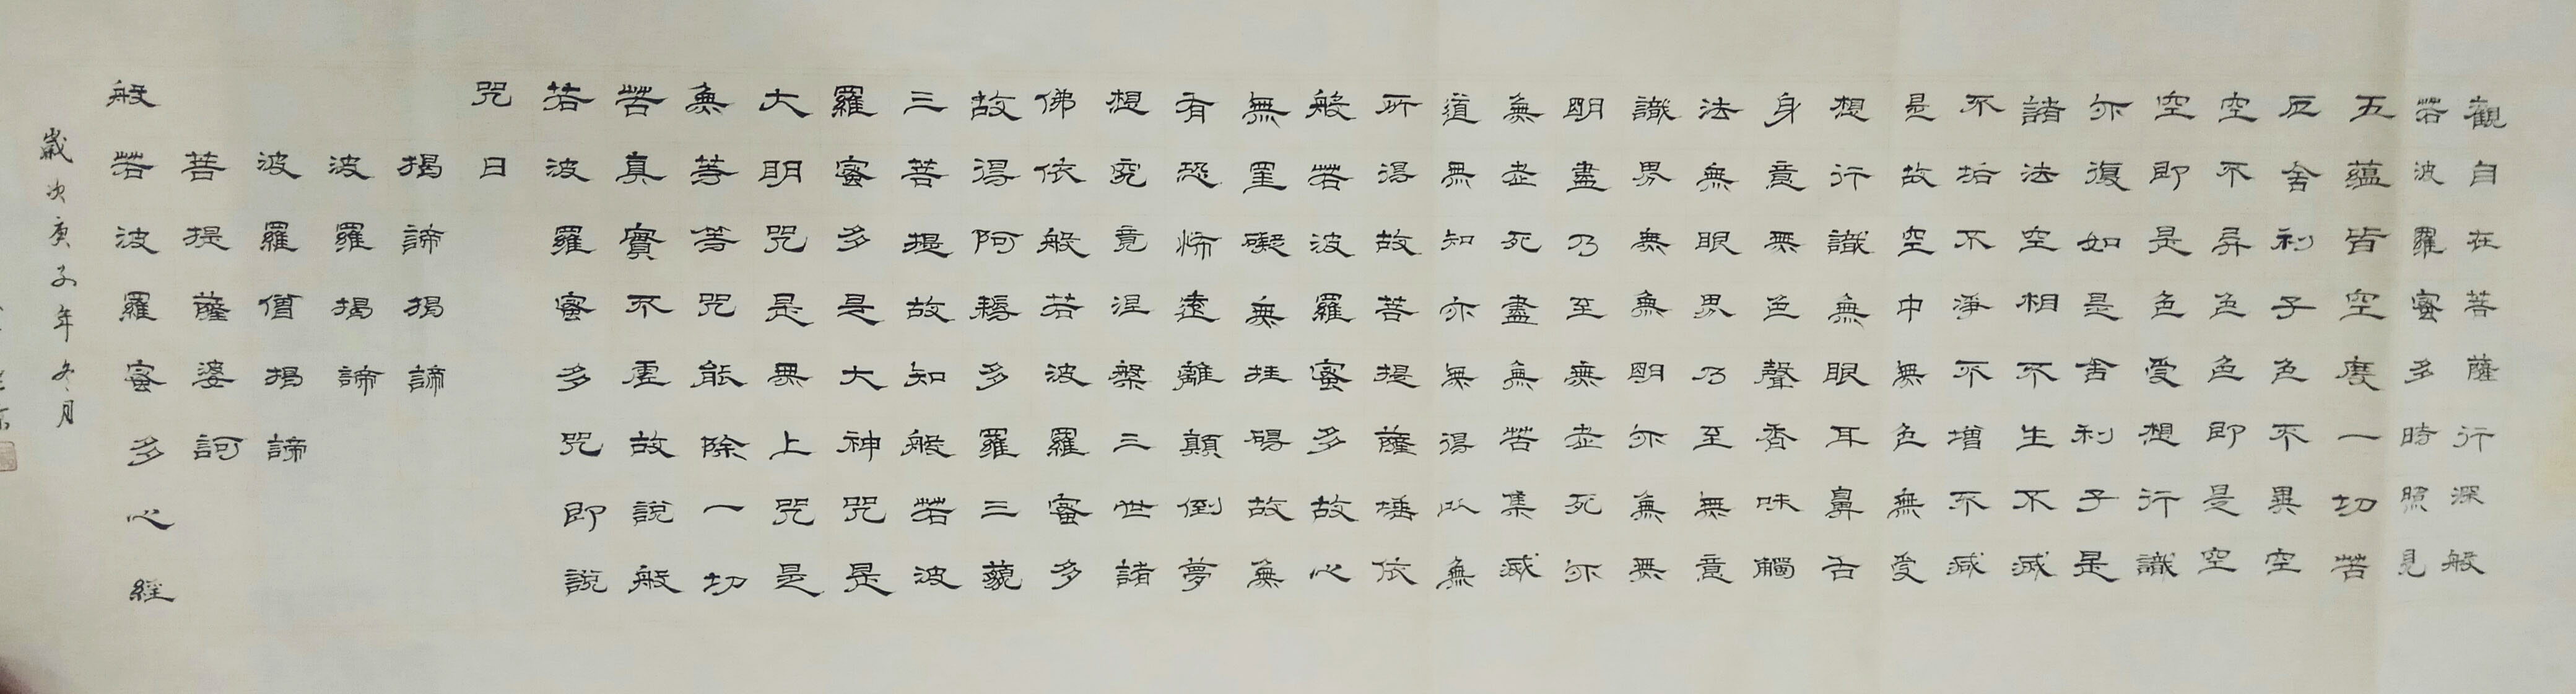 觀自在菩薩行深般
若波羅蜜多時照見
五蘊皆空度一切苦
厄舍利子色不異空
空不異色色即是空
空即是色受想行識
亦復如是舍利子是
諸法空相不生不滅
不垢不淨不增不減
是故空中無色無受
想行識無眼耳鼻舌
身意無色聲香味觸
法無眼界乃至無意
識界無無明亦無無
明盡乃至無老死亦
無老死盡無苦集滅
道無知亦無得以無
所得故菩提薩埵依
般若波羅蜜多故心
無罣礙無挂碍故無
有恐怖遠離顛倒夢
想究竟涅槃三世諸
佛依般若波羅蜜多
故得阿耨多羅三藐
三菩提故知般若波
羅蜜多是大神咒是
大明咒是無上咒是
無等等咒能除一切
苦真實不虛故說般
若波羅蜜多咒即說
咒曰
揭諦揭諦
波羅揭諦
波羅僧揭諦
菩提薩婆訶
般若波羅蜜多心經
歲次庚子年冬月